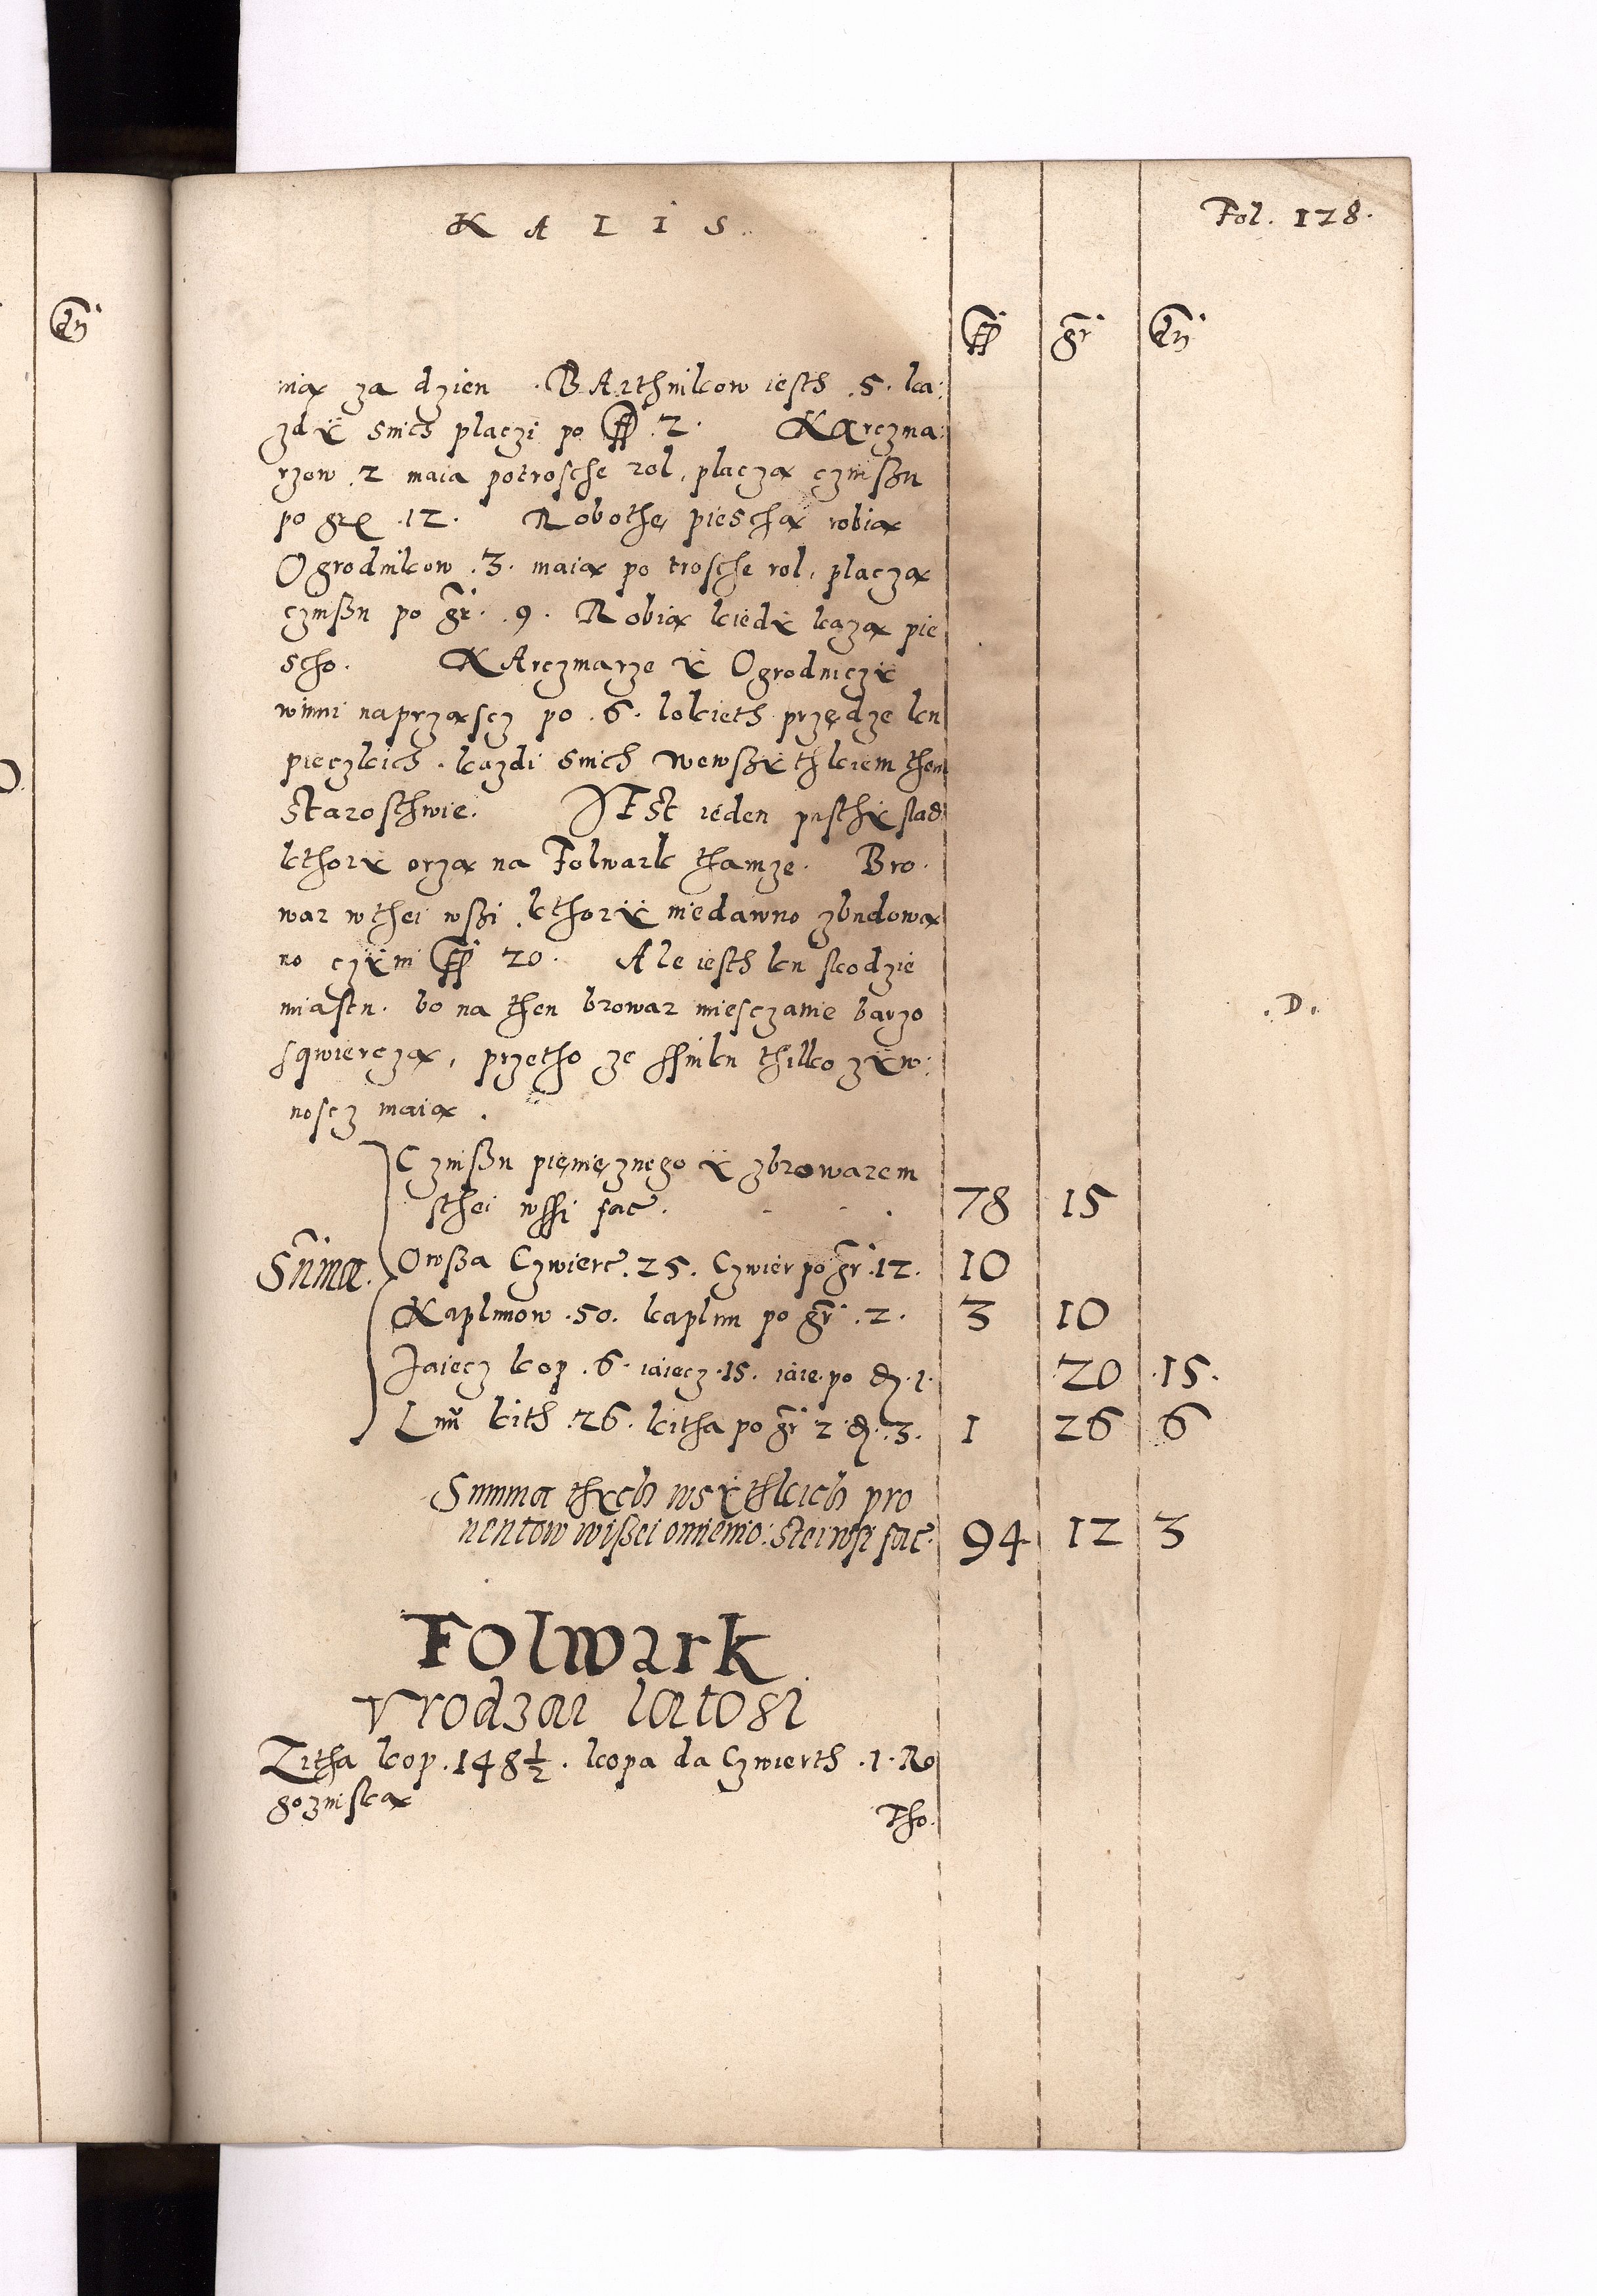 KALIS
Fol. 128.
ff gr dn
dn
nią za dzien . BArthnikow iesth .5. ka:
zdÿ snich placzi po ff .2. KArczma:
rzow .2 maia potrosche rol, placzą czinßu
po grę .12. Robothę pieschą robią
Ogrodnikow .3. maią po trosche rol, placzą
czinßu po gr. .9. Robią kiedÿ kazą pie
scho. KArczmarze ÿ Ogrodniczÿ
winni naprząscz po .6. lokieth przędze ku
pieczkich . kazdi snich wewßÿthkiem them
Staroschwie. JEst ieden pusthÿ slad
kthorÿ orzą na Folwark thamze. Bro.
war wthei wßi kthorÿ niedawno zbudowa
no czÿni ff 20. Ale iesth ku skodzie
miastu. bo na then browar miesczanie barzo
sqwierczą, przetho ze ssinku thilko zÿw:
noscz maią .
.D.
Czinßu pieniężnego ÿ zbrowarem
sthei wssi fac. 78 15
Summa.
Owßa Czwierc .25. Czwier po gr .12. 10
Kaplunow .50. kaplun po gr .2. 3 10
Jaiecz kop .6. iaiecz .15. iaie. po d. 1. 20 .15.
Lnu kith .26. kitha po gr 2 d. 3. 1 26 6
Summa thÿch wsÿthkich pro
uentow wißei omienio: stei wsi fac. 94 12 3
Folwark
Vrodzai latosi
Zitha kop .148½. kopa da Czwierth .1. Ro
gozinska
Tho.